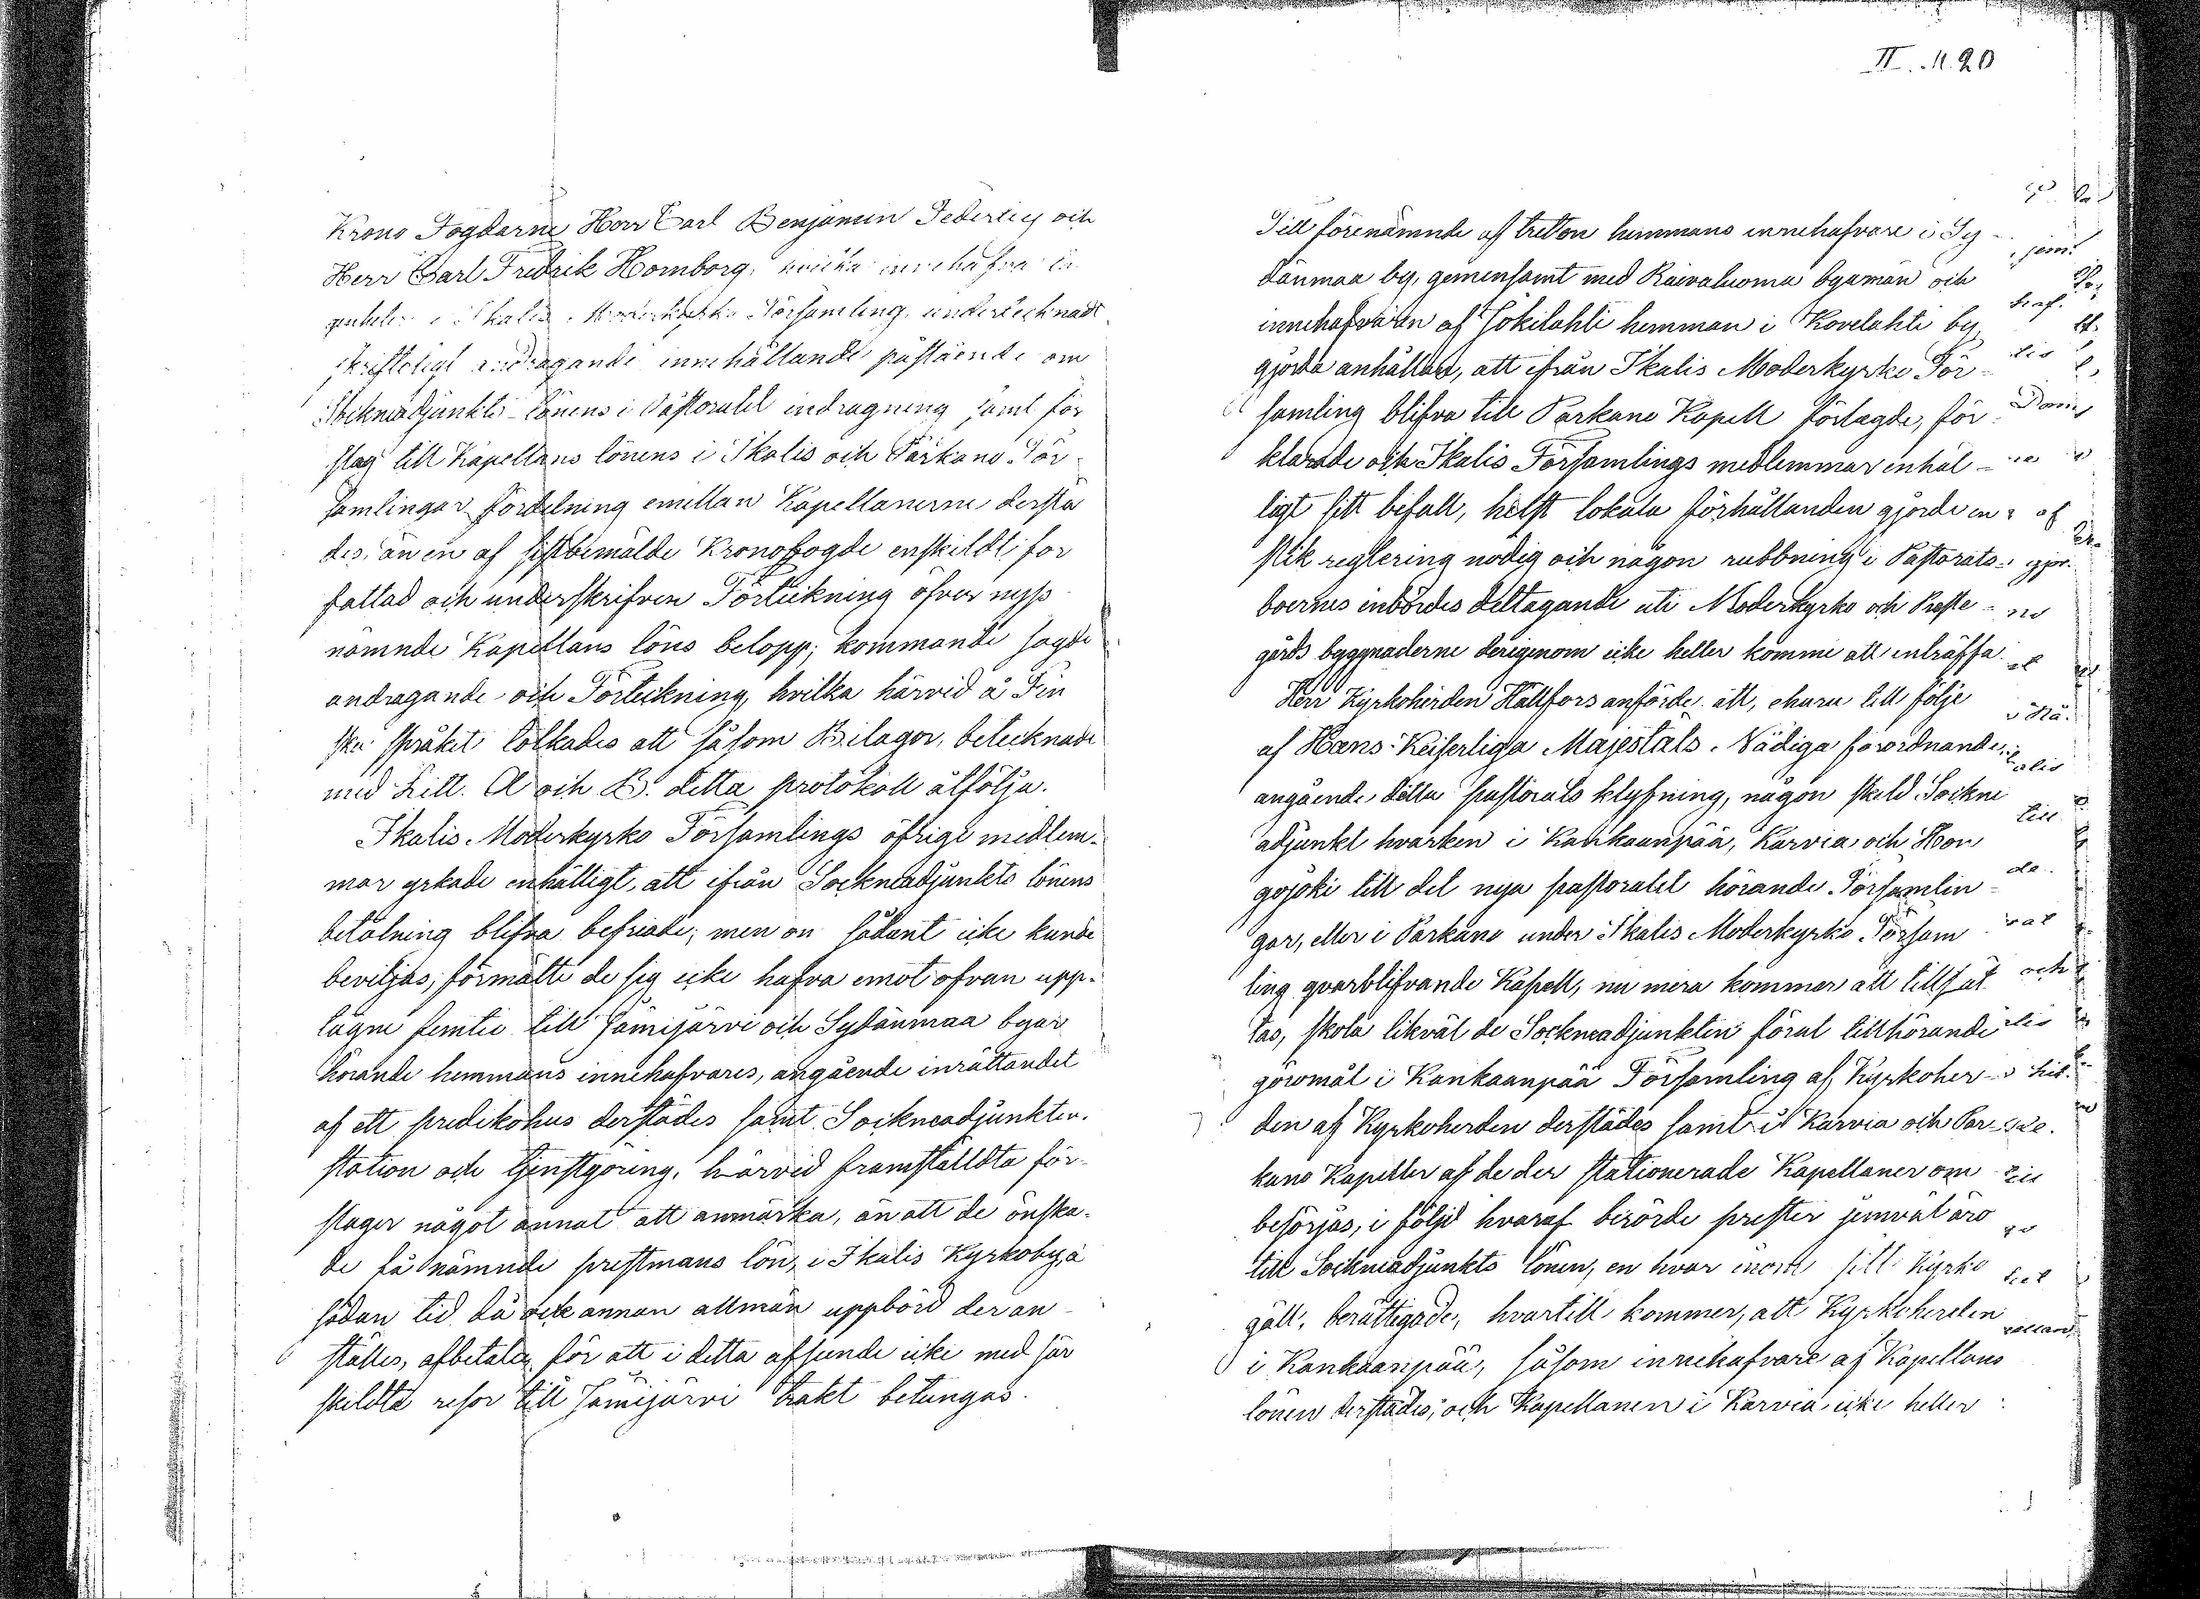 II. M. 20
Krono Fogdarne Herr Carl Benjamin Federley och
Herr Carl Fredrik Homborg, hvilka innehafva lä
genheter i Ikalis Moderkyrko Församling, undertecknadt
skrifteligt andragande innehållande påstående om
Sockneadjunkts lönens i Pastoratet indragning samt för
slag till Kapellans lönens i Ikalis och Parkano För-
samlingar fördelning emellan Kapellanerne derstä
des, än en af sistbemälde Kronofogde enskildt for
fattad och underskrifven Förteckning öfver nyss
nämnde Kapellans löns belopp; kommande sagde
andragande och Förteckning, hvilka härvid å Fin
ska språket tolkades att såsom Bilagor, betecknade
med Litt. A och B. detta protokoll åtfölja.
Ikalis Moderkyrko Församlings öfrige medlem-
mar yrkade enhälligt, att ifrån Sockneadjunkts lönens
betalning blifva befriade; men om sådant icke kunde
beviljas, förmälte de sig icke hafva emot ofvan upp-
tagne femtio till Jämijärvi och Sydänmaa byar
hörande hemmans innehafvares, angående inrättandet
af ett predikohus derstädes samt Sockneadjunkten.
station och tjenstgöring, härvid framställdta för-
slager något annat att anmärka, än att de önska-
de få nämnde prestmans lön, i Ikalis Kyrkoby, å
sådan tid då ock annan allmän uppbörd der an-
ställes, afbetala för att i detta afseende icke med sär
skildta resor till Jämijärvi trakt betungas.
Till förenämnde af tretton hemmans innehafvare i Sy-
dänmaa by, gemensamt med Raivaluoma byamän och
innehafvaren af Jokilahti hemman i Kovelahti by
gjorda anhållan, att ifrån Ikalis Moderkyrko För-
samling blifva till Parkano Kapell förlagde, för
klarade och Ikalis Församlings medlemmar enhäl-
ligt sitt bifall, helst lokala förhållanden gjorde en
slik reglering nödig och någon rubbning i Pastorats-
boernes inbördes deltagande uti Moderkyrko och Preste-
gårds byggnaderne derigenom icke heller komme att inträffa.
Herr Kyrkoherden Hällfors anförde att, ehuru till följe
af Hans Keiserliga Majestäts Nådiga förordnande
angående detta pastorats klyfning, någon skild Sockne
adjunkt hvarken i Kankaanpää, Karvia och Hon
gojoki till det nya pastoratet hörande Församlin-
gar, eller i Parkano under Ikalis Moderkyrko Försam
ling qvarblifvande Kapell, nu mera kommer att tillsät
tas, skola likväl de Sockneadjunkten förut tillhörande
göromål i Kankaanpää Församling af Kyrkoher-
den af Kyrkoherden derstädes samt i Karvia och Par-
kano Kapeller af de der stationerade Kapellaner om
besörjas, i följd hvaraf berörde prester jemväl äro
till Sockneadjunkts lönen, en hvar inom sitt Kyrko
gäll, berättigade, hvartill kommer, att Kyrkoherden
i Kankaanpää, såsom innehafvare af Kapellans
lönen derstädes, och Kapellanen i Karvia icke heller